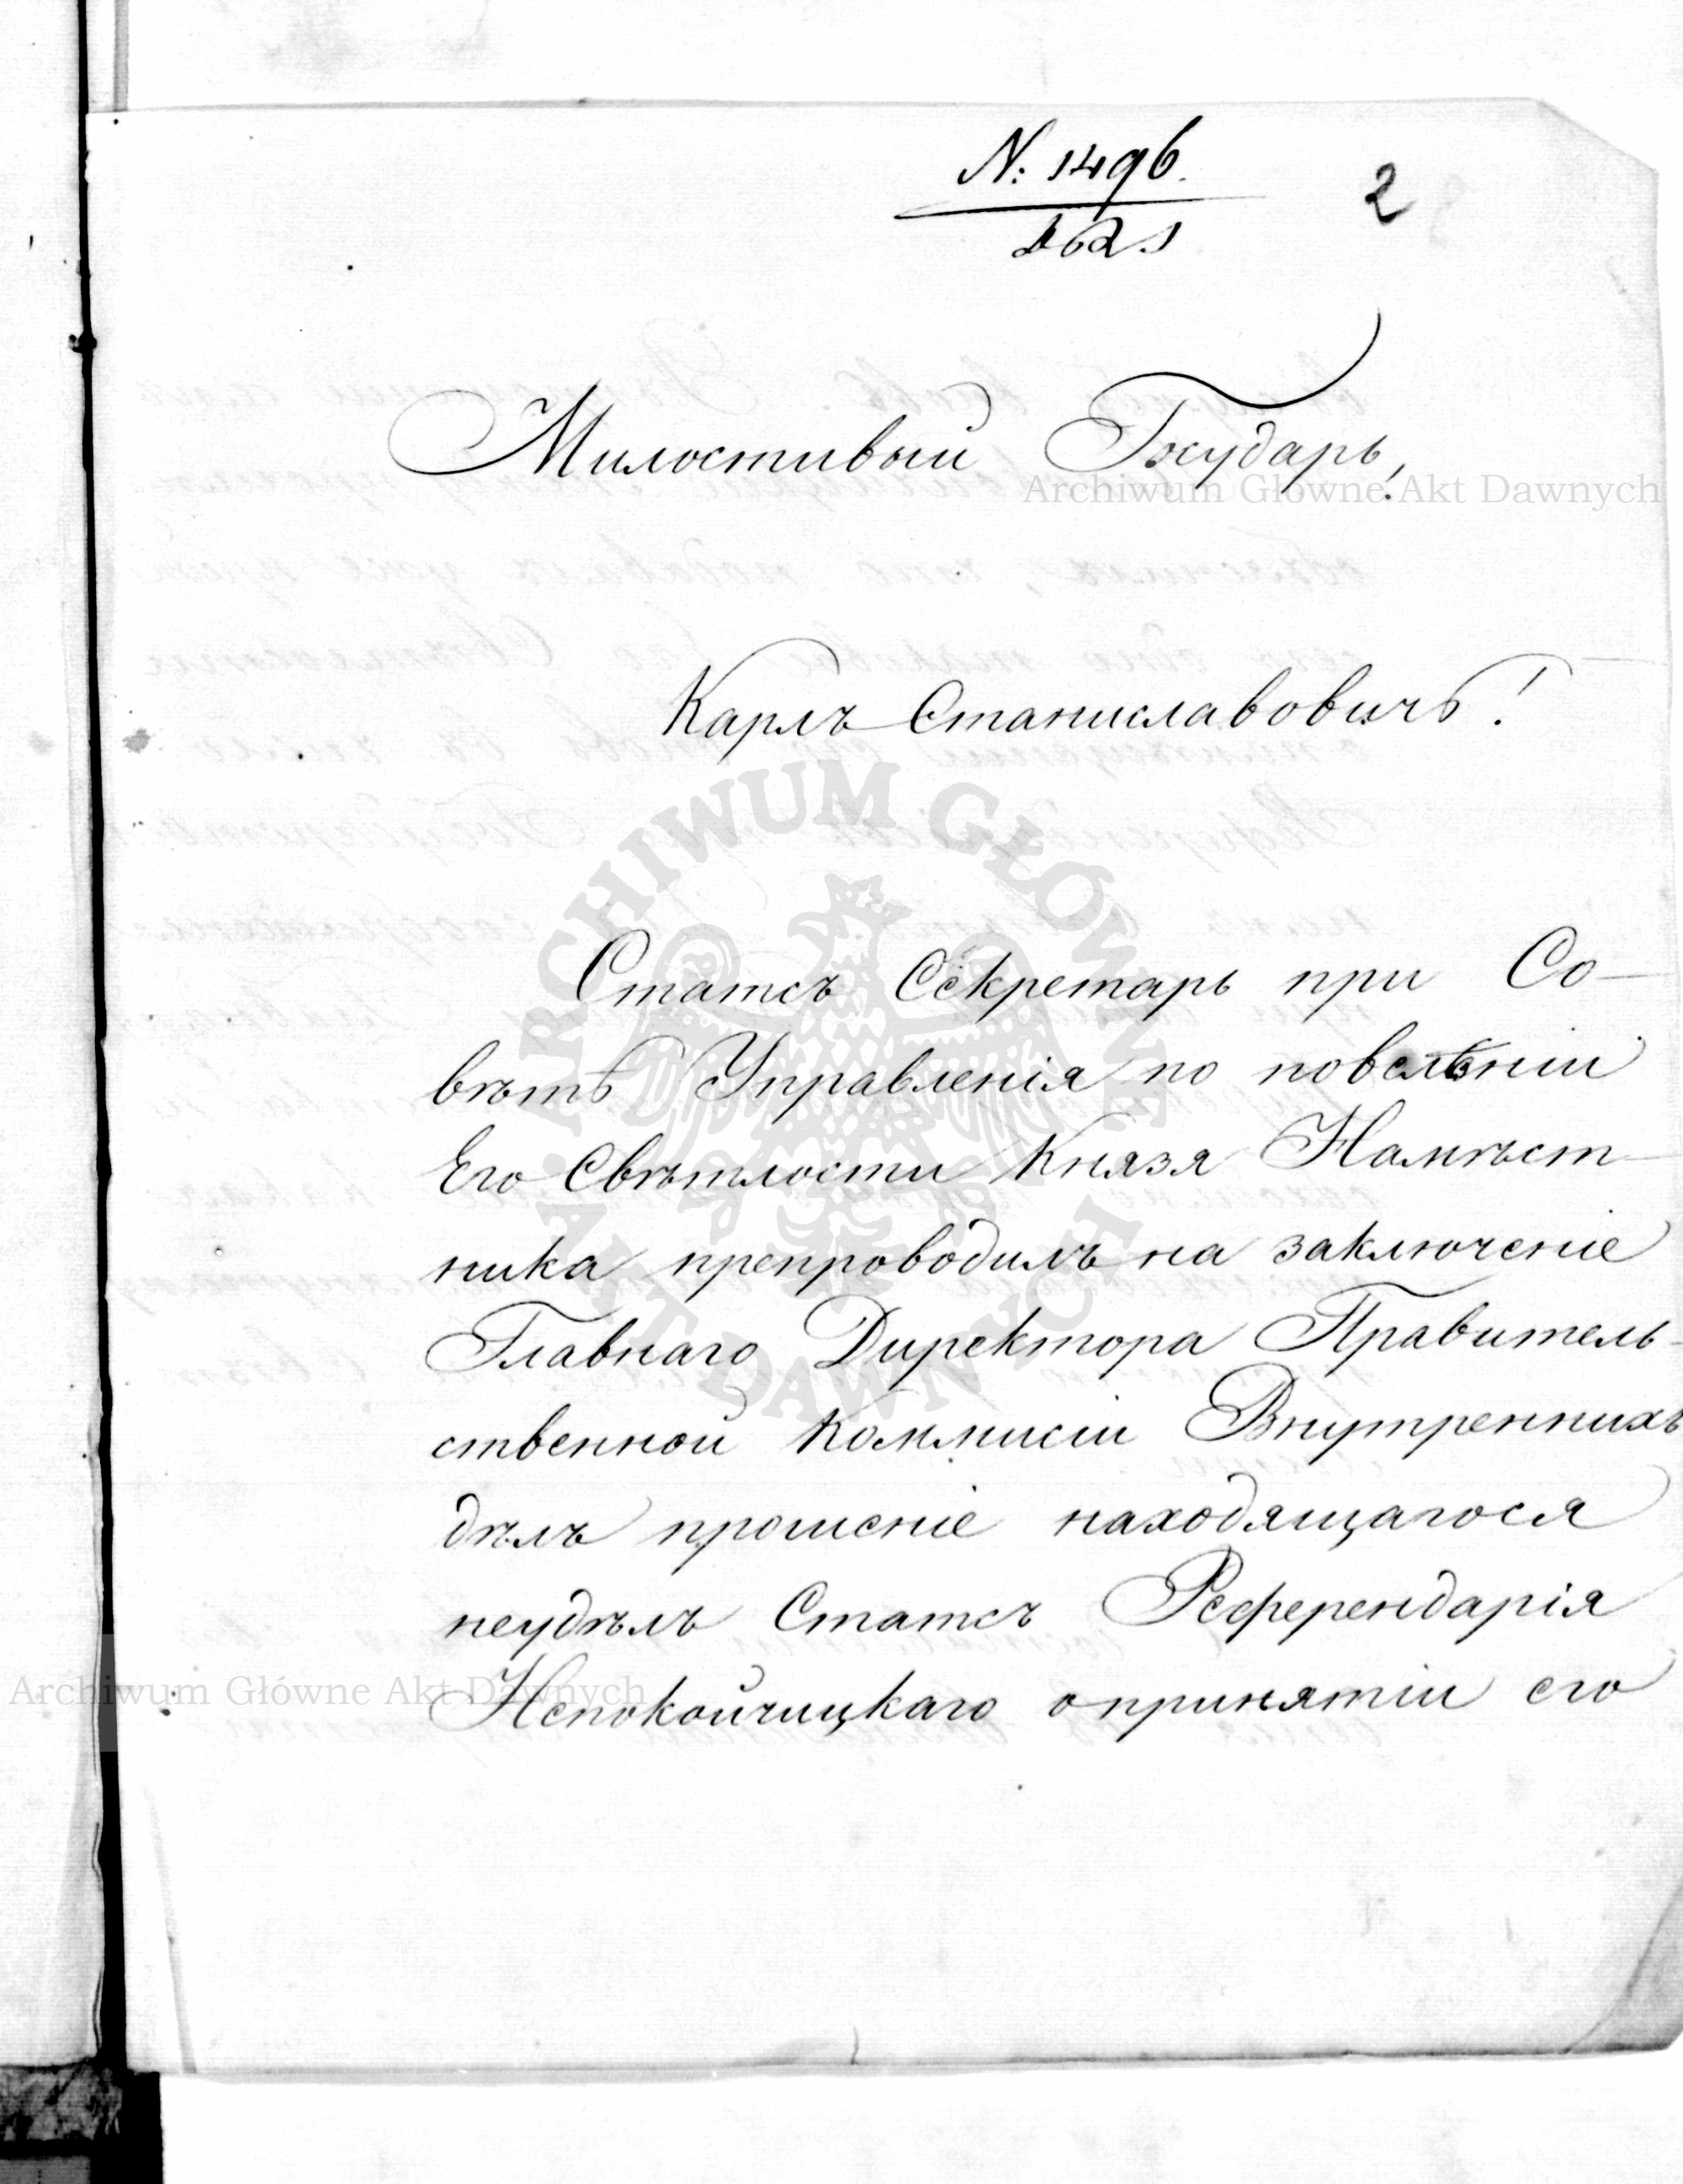 N: 1496.
1621
2
Милостивый Государь,
Archiwum Główne Akt Dawnych
Карлъ Станиславовичъ!
ARCHIWUM GŁÓWNE
AKT DAWNYCH
Статсъ Секретарь при Со–
вѣтѣ Управленія по повелѣніи
Его Свѣтлости Князя Намѣст–
ника препроводилъ на заключеніе
Главнаго Директора Правитель–
ственной Коммисіи Внутреннихъ
дѣлъ прошеніе находящагося
неудѣлъ Статсъ Референдарія
Archiwum Główne Akt Dawnych
Непокойчицкаго о принятіи его